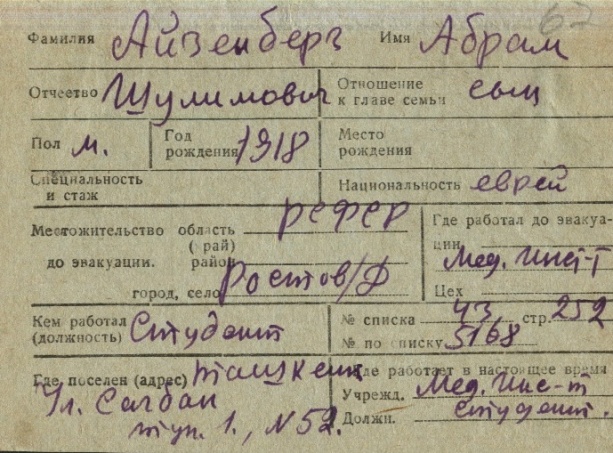 62
Фамилия Айзенберг Имя Абрам
Отчество Шулимович Отношение к главе семьи сын
Пол м. Год рождения 1918 Место рождения
Специальность и стаж Национальность еврей
Местожительство область рефер
(край)
до эвакуации. район
город, село Ростов/Д
Где работал до эвакуа-
ции Мед. Инст-т
Цех
Кем работал (должность) Студент
№ списка 43 стр. 252
№ по списку 5168
Где поселен (адрес) Ташкент
Ул. Сагбан
туп. 1., N 52.
Где работает в настоящее время
Учрежд. Мед. Инс-т
Должн. студент.